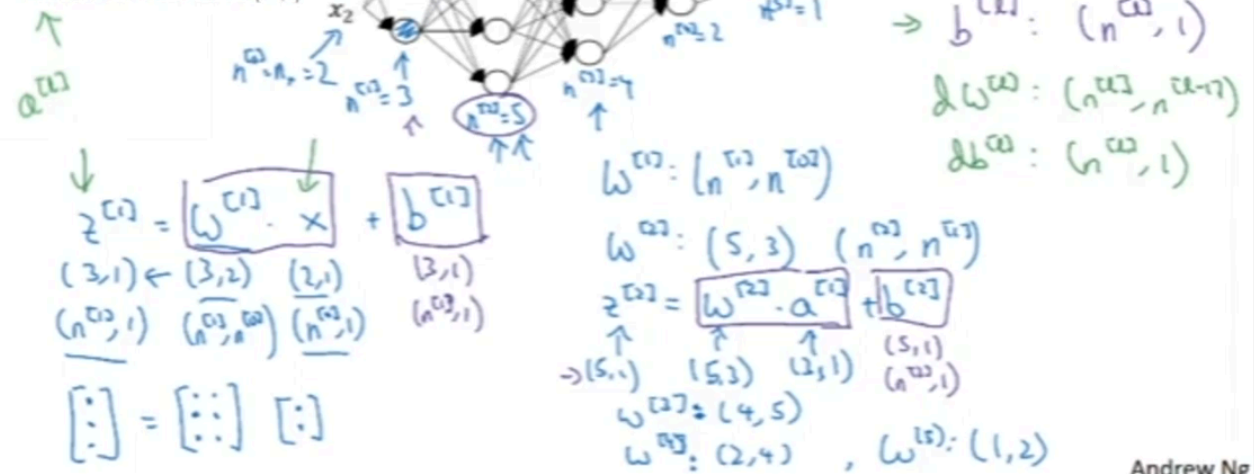 x₂
n^[0] = nₓ = 2
n^[1] = 3
n^[2] = 5
n^[3] = 4
n^[4] = 2
n^[5] = 1
→ b^[l] : (n^[l], 1)
a^[l]
dW^[l] : (n^[l], n^[l-1])
db^[l] : (n^[l], 1)
z^[1] = W^[1] · x + b^[1]
(3,1) ← (3,2) (2,1) (3,1)
(n^[1], 1) (n^[1], n^[0]) (n^[0], 1) (n^[1], 1)
[⋮] = [: :] [:]
W^[1] : (n^[1], n^[0])
W^[2] : (5, 3) (n^[2], n^[1])
z^[2] = W^[2] · a^[1] + b^[2]
→ (5,1) (5,3) (3,1) (5,1)
(n^[2], 1)
W^[3] : (4, 5)
W^[4] : (2,4) , W^[5] : (1,2)
Andrew Ng